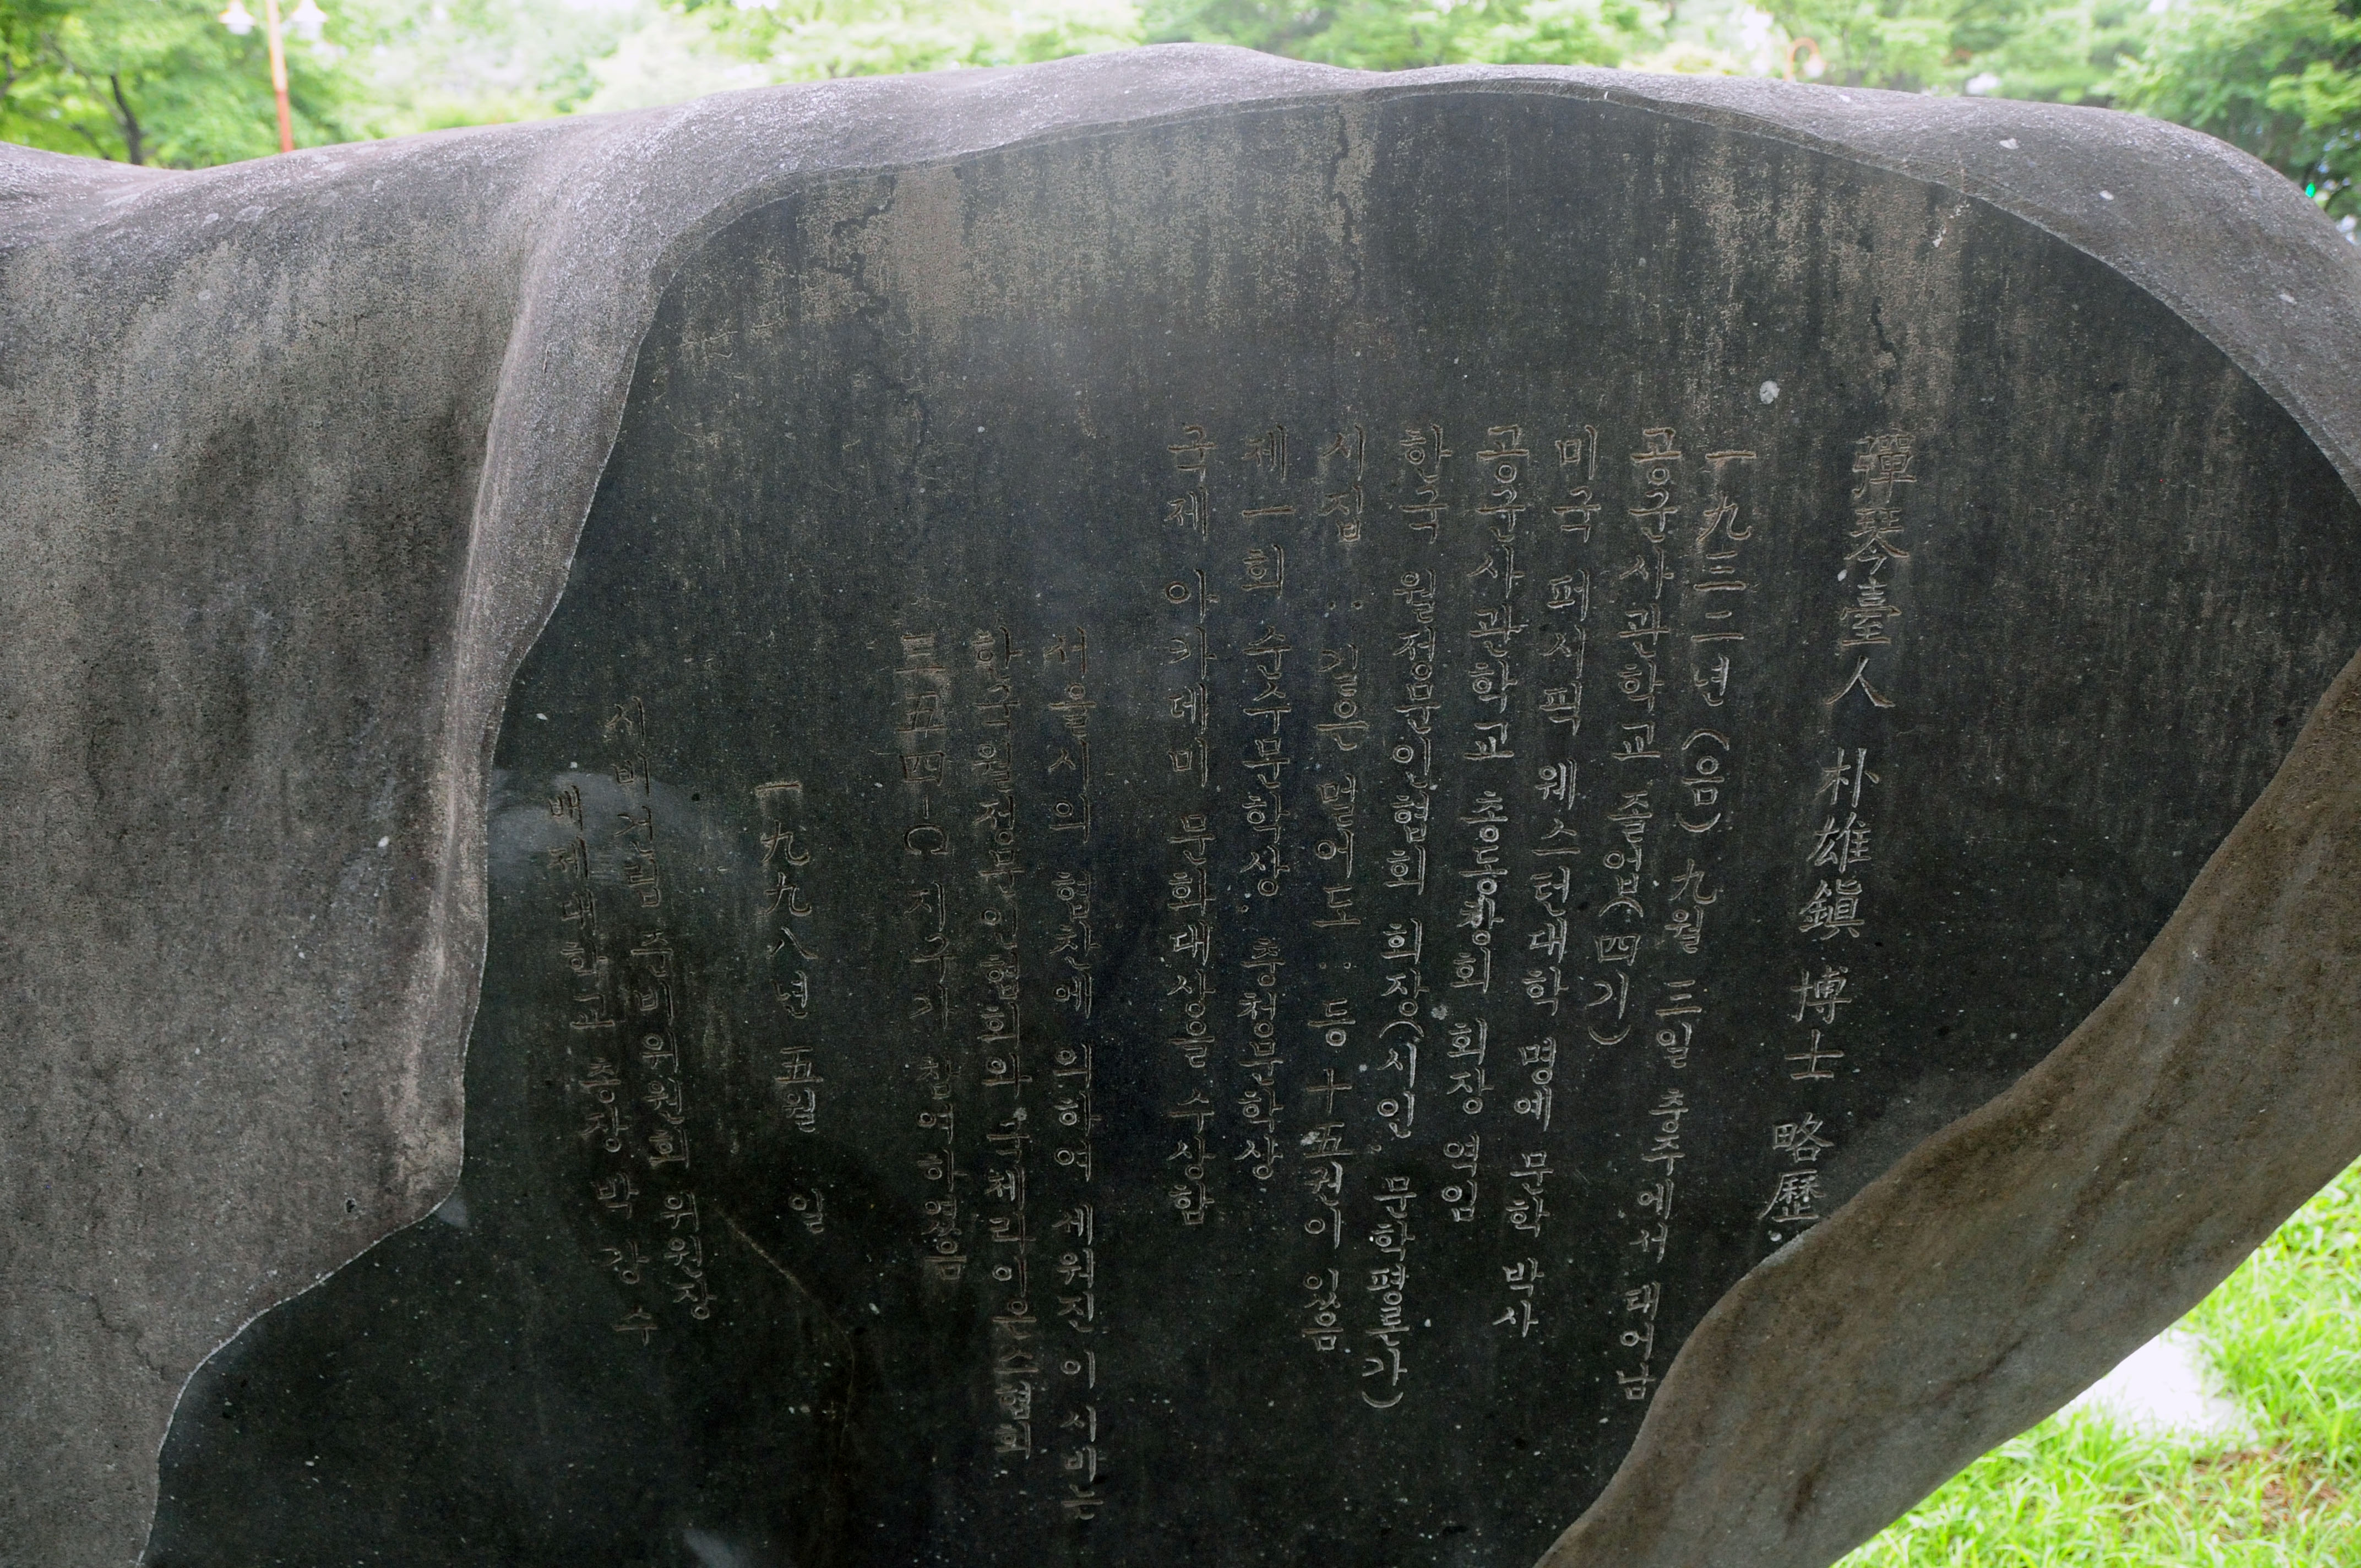 彈琴臺人 朴雄鎭 博士 略歷
一九三二년(음) 九월 三일 충주에서 태어남
공군사관학교 졸업(四기)
미국 퍼시픽 웨스턴대학 명예 문학 박사
공군사관학교 총동창회 회장 역임
한국 월정문인협회 회장(시인 문학평론가)
시집: 길은 멀어도 :: 등 十五권이 있음
제一회 순수문학상. 충청문학상
국제 아카데미 문화대상을 수상함
서울시의 협찬에 의하여 세워진 이 시비는
한국월정문인협회와 국제라이온스협회
三五四-D 지구가 참여하였음
一九九八년 五월 일
시비건립 준비위원회 위원장
배재대학교 총장 박 강 수